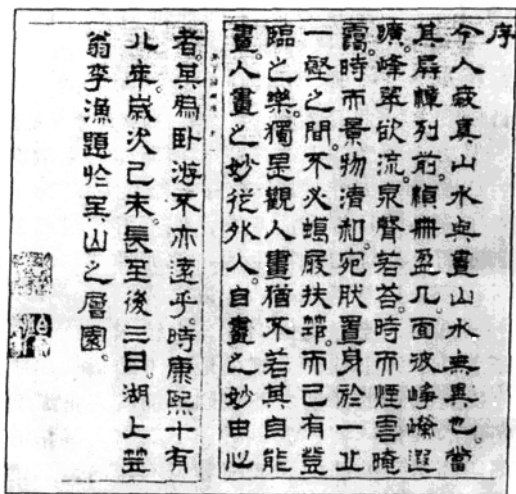 序
今人愛真山水與畫山水無異也。當
其屏幛列前。幀冊盈几。面彼崢嶸遐
曠。峰翠欲流。泉聲若荅。時而煙雲晻
靄。時而景物清和。宛肰置身於一丘
一壑之間。不必蠟屐扶筇。而已有登
臨之樂。獨是觀人畫猶不若其自能
畫。人畫之妙從外入。自畫之妙由心
者。其為臥游不亦遠乎。時康熙十有
八年歲次己未長至後三日。湖上笠
翁李漁題於吳山之層園。